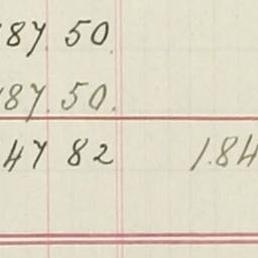 87 50
87.50.
47 82 1.84